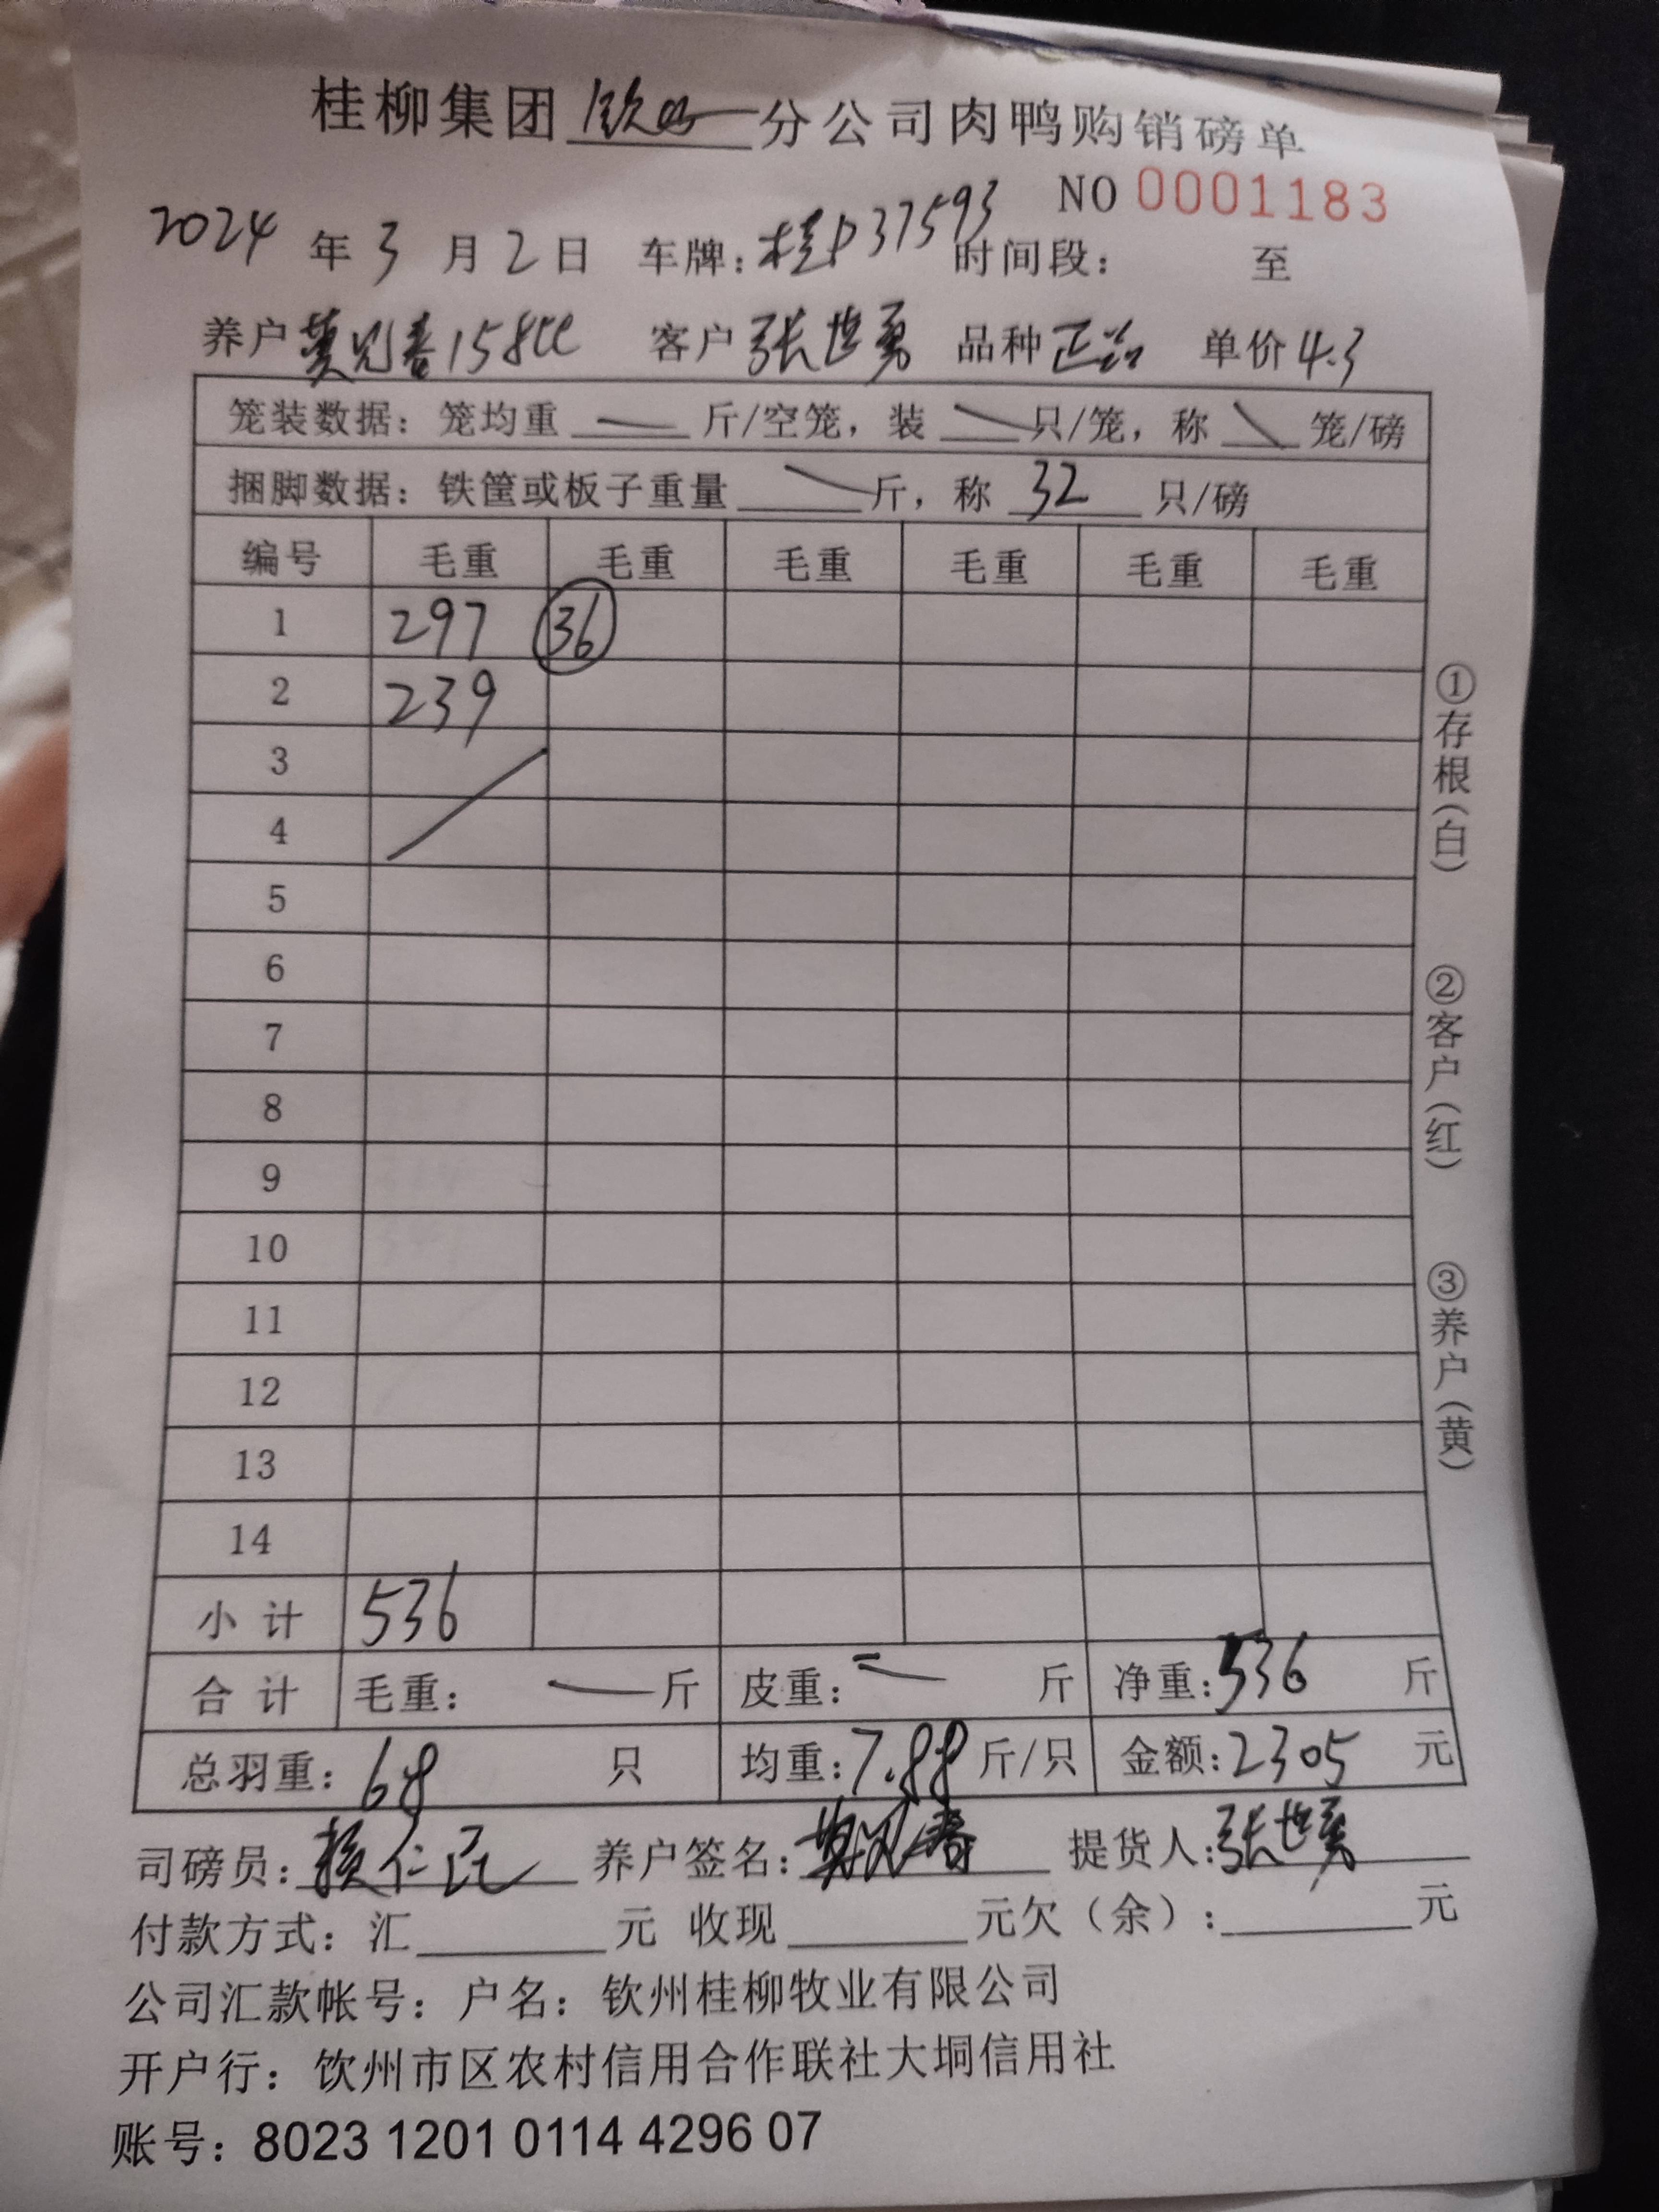 桂柳集团钦州分公司肉鸭购销磅单
NO 0001183
2024年3月2日 车牌:桂P37593 时间段: 至
养户 158 客户张世勇 品种正品 单价4.3
笼装数据:笼均重 — 斤/空笼,装 — 只/笼,称 — 笼/磅
捆脚数据:铁筐或板子重量 — 斤,称 32 只/磅
编号 毛重 毛重 毛重 毛重 毛重 毛重
1 297 36
2 239
3
4
5
6
7
8
9
10
11
12
13
14
小计 536
合计 毛重: — 斤 皮重: — 斤 净重:536 斤
总羽重:68 只 均重:7.88 斤/只 金额:2305 元
司磅员: 养户签名: 提货人:张世勇
付款方式:汇 元 收现 元欠(余): 元
公司汇款帐号:户名:钦州桂柳牧业有限公司
开户行:钦州市区农村信用合作联社大垌信用社
账号:8023 1201 0114 4296 07
①存根(白)
②客户(红)
③养户(黄)